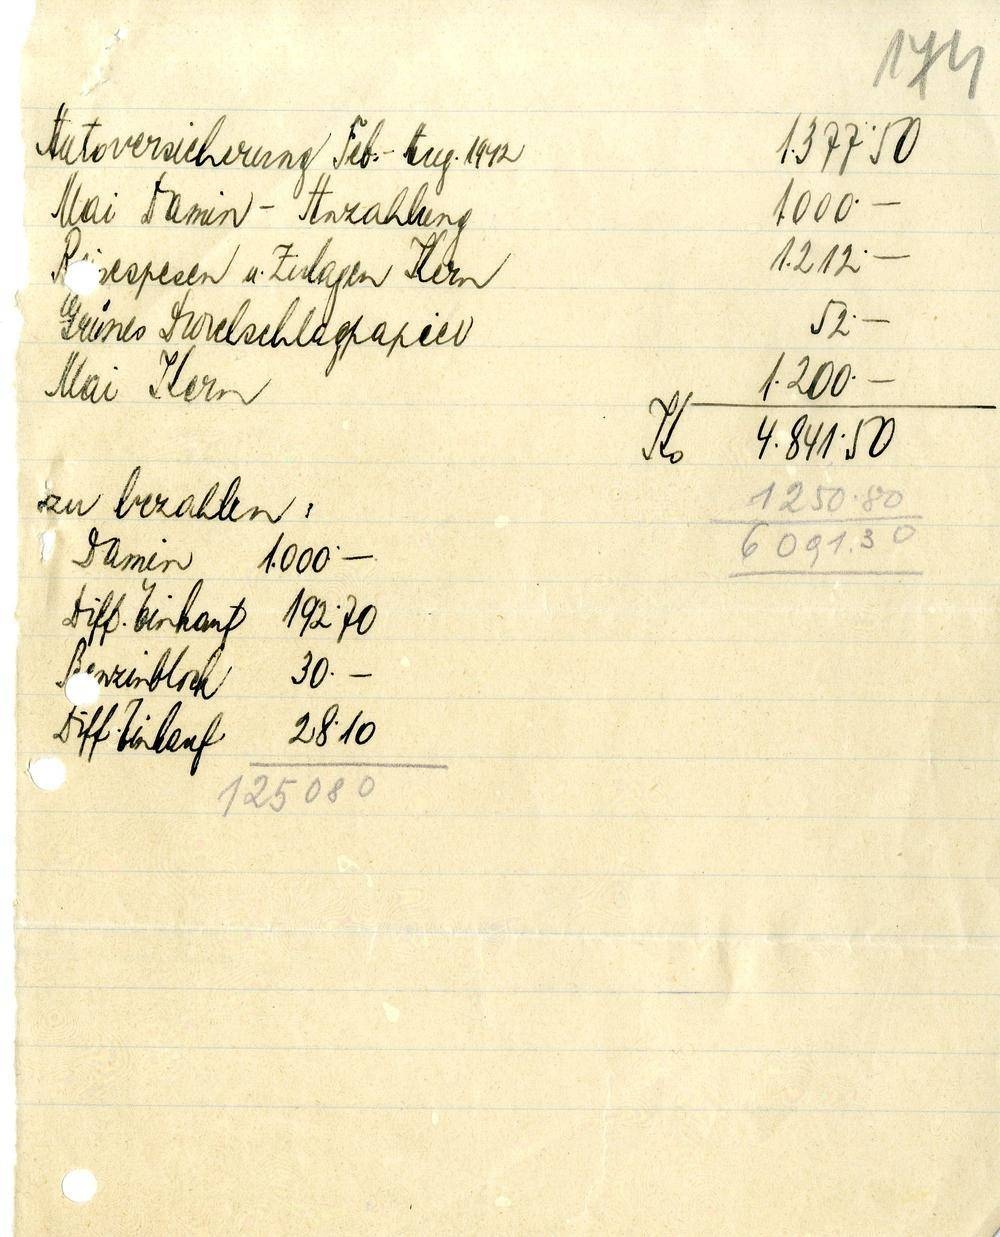 174
Autoversicherung Feb.- Aug. 1942 1.377.50
Mai Damin - Anzahlung 1.000.—
Reisespesen u. Zulagen Kern 1.212.—
Grünes Durchschlagpapier 52.—
Mai Kern 1.200.—
K. 4.841.50
1250.80
6091.30
zu bezahlen:
Damin 1.000.—
Diff. Einkauf 192.70
Benzinblock 30.—
Diff. Einkauf 28.10
125080